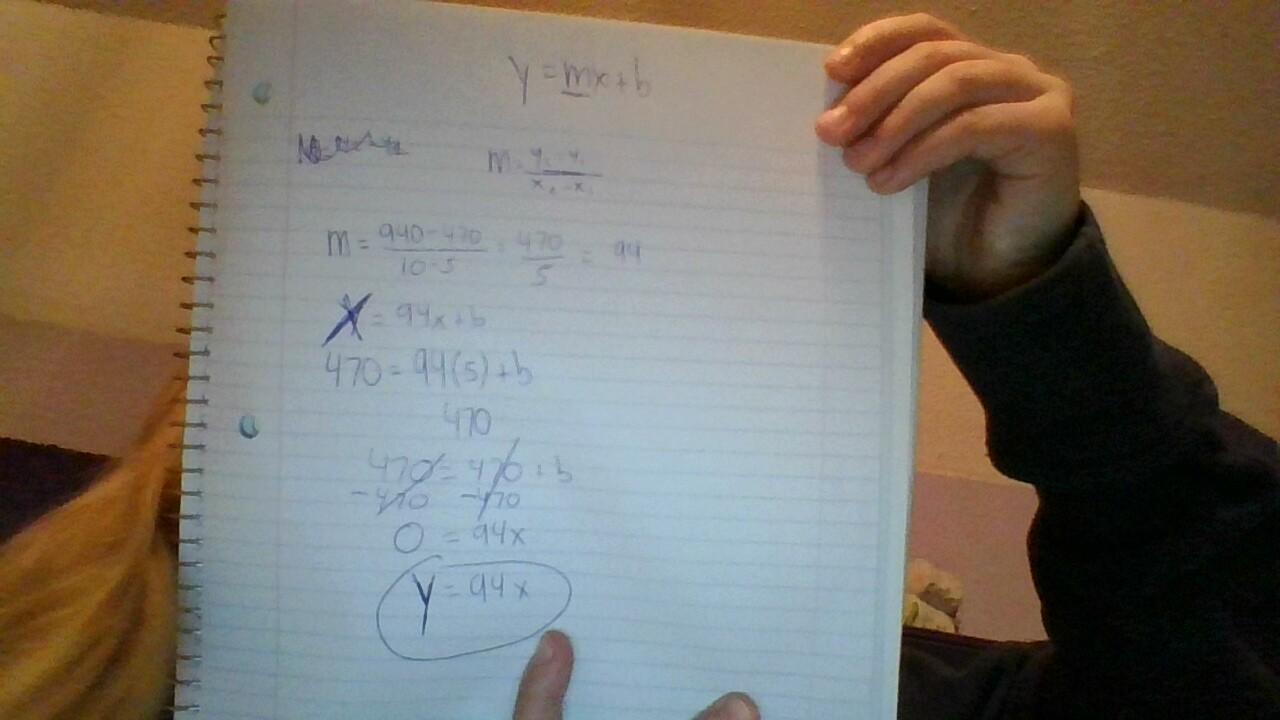 y = mx + b
m = y₂ - y₁ / x₂ - x₁
m = 940 - 470 / 10 - 5 = 470 / 5 = 94
y = 94x + b
470 = 94(5) + b
470
470 = 470 + b
-470 -470
0 = 94x
y = 94x